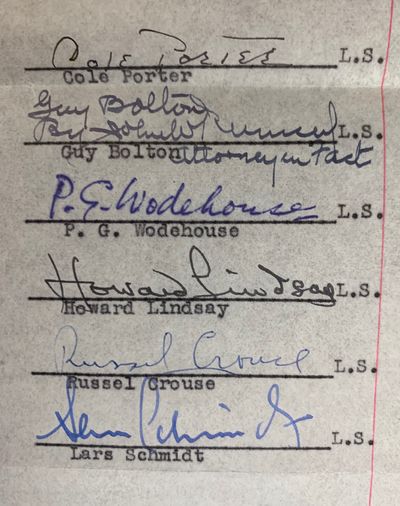 Cole Porter L.S.
Cole Porter
Guy Bolton
By John W. L.S.
Guy Bolton Attorney in Fact
P. G. Wodehouse L.S.
P. G. Wodehouse
Howard Lindsay L.S.
Howard Lindsay
Russel Crouse L.S.
Russel Crouse
L.S.
Lars Schmidt